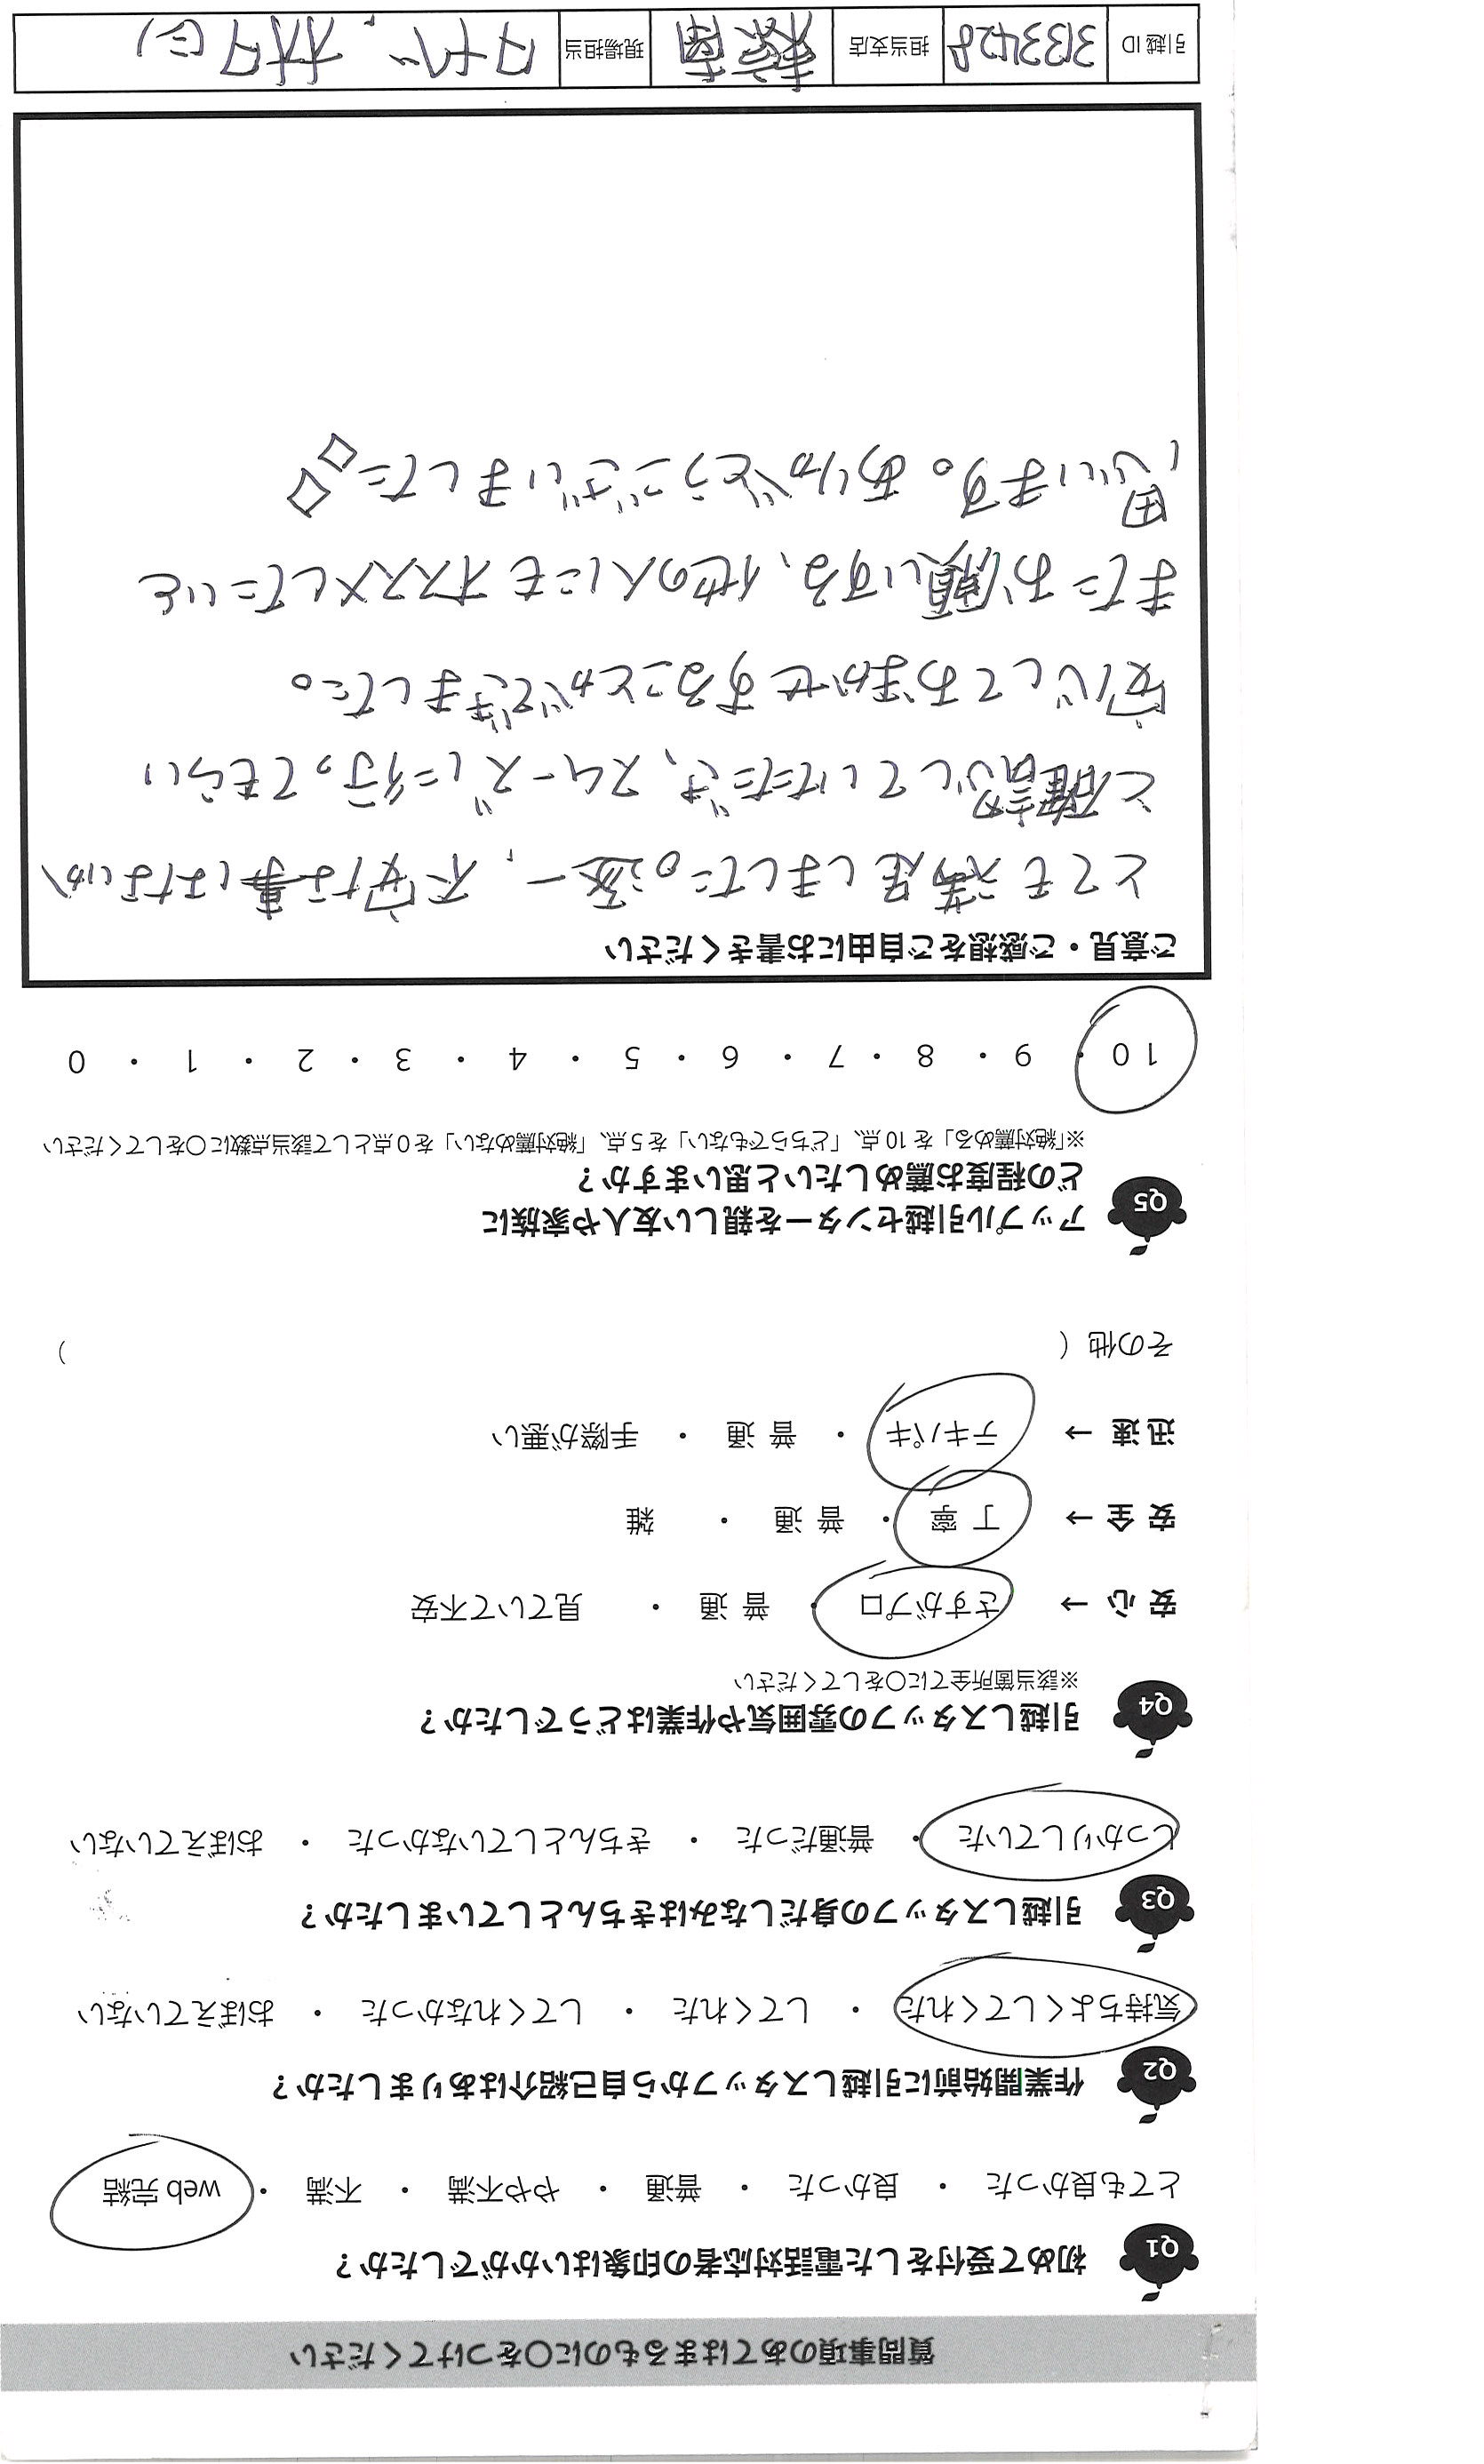 質問事項のあてはまるものに〇をつけてください
Q1 初めて受付をした電話対応者の印象はいかがでしたか？
とても良かった ・ 良かった ・ 普通 ・ やや不満 ・ 不満 ・ web 完結
Q2 作業開始前に引越しスタッフから自己紹介はありましたか？
気持ちよくしてくれた ・ してくれた ・ してくれなかった ・ おぼえていない
Q3 引越しスタッフの身だしなみはきちんとしていましたか？
しっかりしていた ・ 普通だった ・ きちんとしていなかった ・ おぼえていない
Q4 引越しスタッフの雰囲気や作業はどうでしたか？
※該当箇所全てに〇をしてください
安心 → さすがプロ ・ 普通 ・ 見ていて不安
安全 → 丁寧 ・ 普通 ・ 雑
迅速 → テキパキ ・ 普通 ・ 手際が悪い
その他 （ ）
Q5 アップル引越センターを親しい友人や家族に
どの程度お薦めしたいと思いますか？
※「絶対薦める」を10点、「どちらでもない」を5点、「絶対薦めない」を0点として該当点数に〇をしてください
10 ・ 9 ・ 8 ・ 7 ・ 6 ・ 5 ・ 4 ・ 3 ・ 2 ・ 1 ・ 0
ご意見・ご感想をご自由にお書きください
とても満足しました。逐一、不安な事はないか
と確認していただき、スムーズに行ってもらい
安心しておまかせすることができました。
またお願いする、他の人にもオススメしたいと
思います。ありがとうございました
引越ID 3133428 担当支店 現場担当